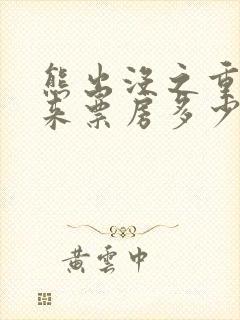 熊出没之重
来票房多少
黄云中